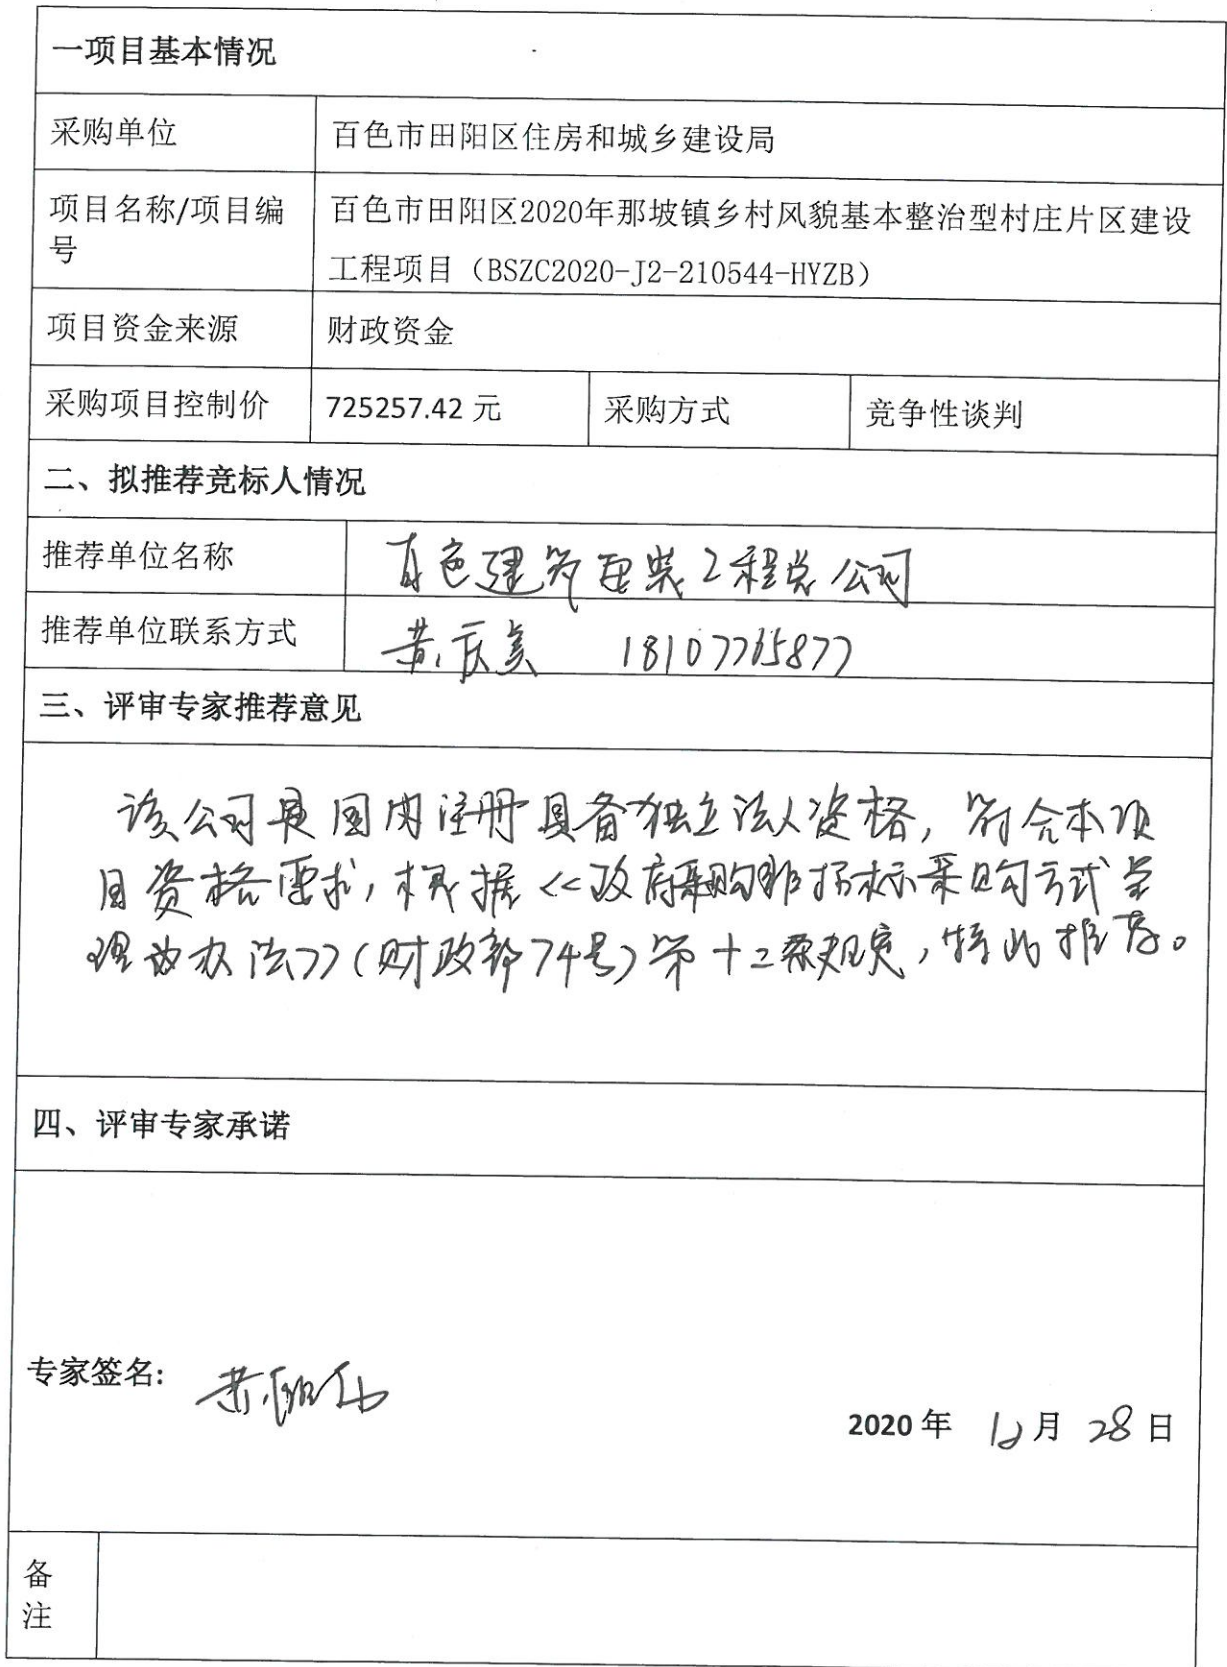 一项目基本情况
采购单位
百色市田阳区住房和城乡建设局
项目名称/项目编
号
百色市田阳区2020年那坡镇乡村风貌基本整治型村庄片区建设
工程项目（BSZC2020-J2-210544-HYZB）
项目资金来源
财政资金
采购项目控制价 725257.42 元 采购方式 竞争性谈判
二、拟推荐竞标人情况
推荐单位名称
百色建筑安装工程总公司
推荐单位联系方式
黄庆 18107765877
三、评审专家推荐意见
该公司是国内注册具备独立法人资格，符合本项
目资格要求，根据<<政府采购非招标采购方式管
理办法>>(财政部74号)第十二条规定，特此推荐。
四、评审专家承诺
专家签名: 黄
2020 年 12 月 28 日
备
注